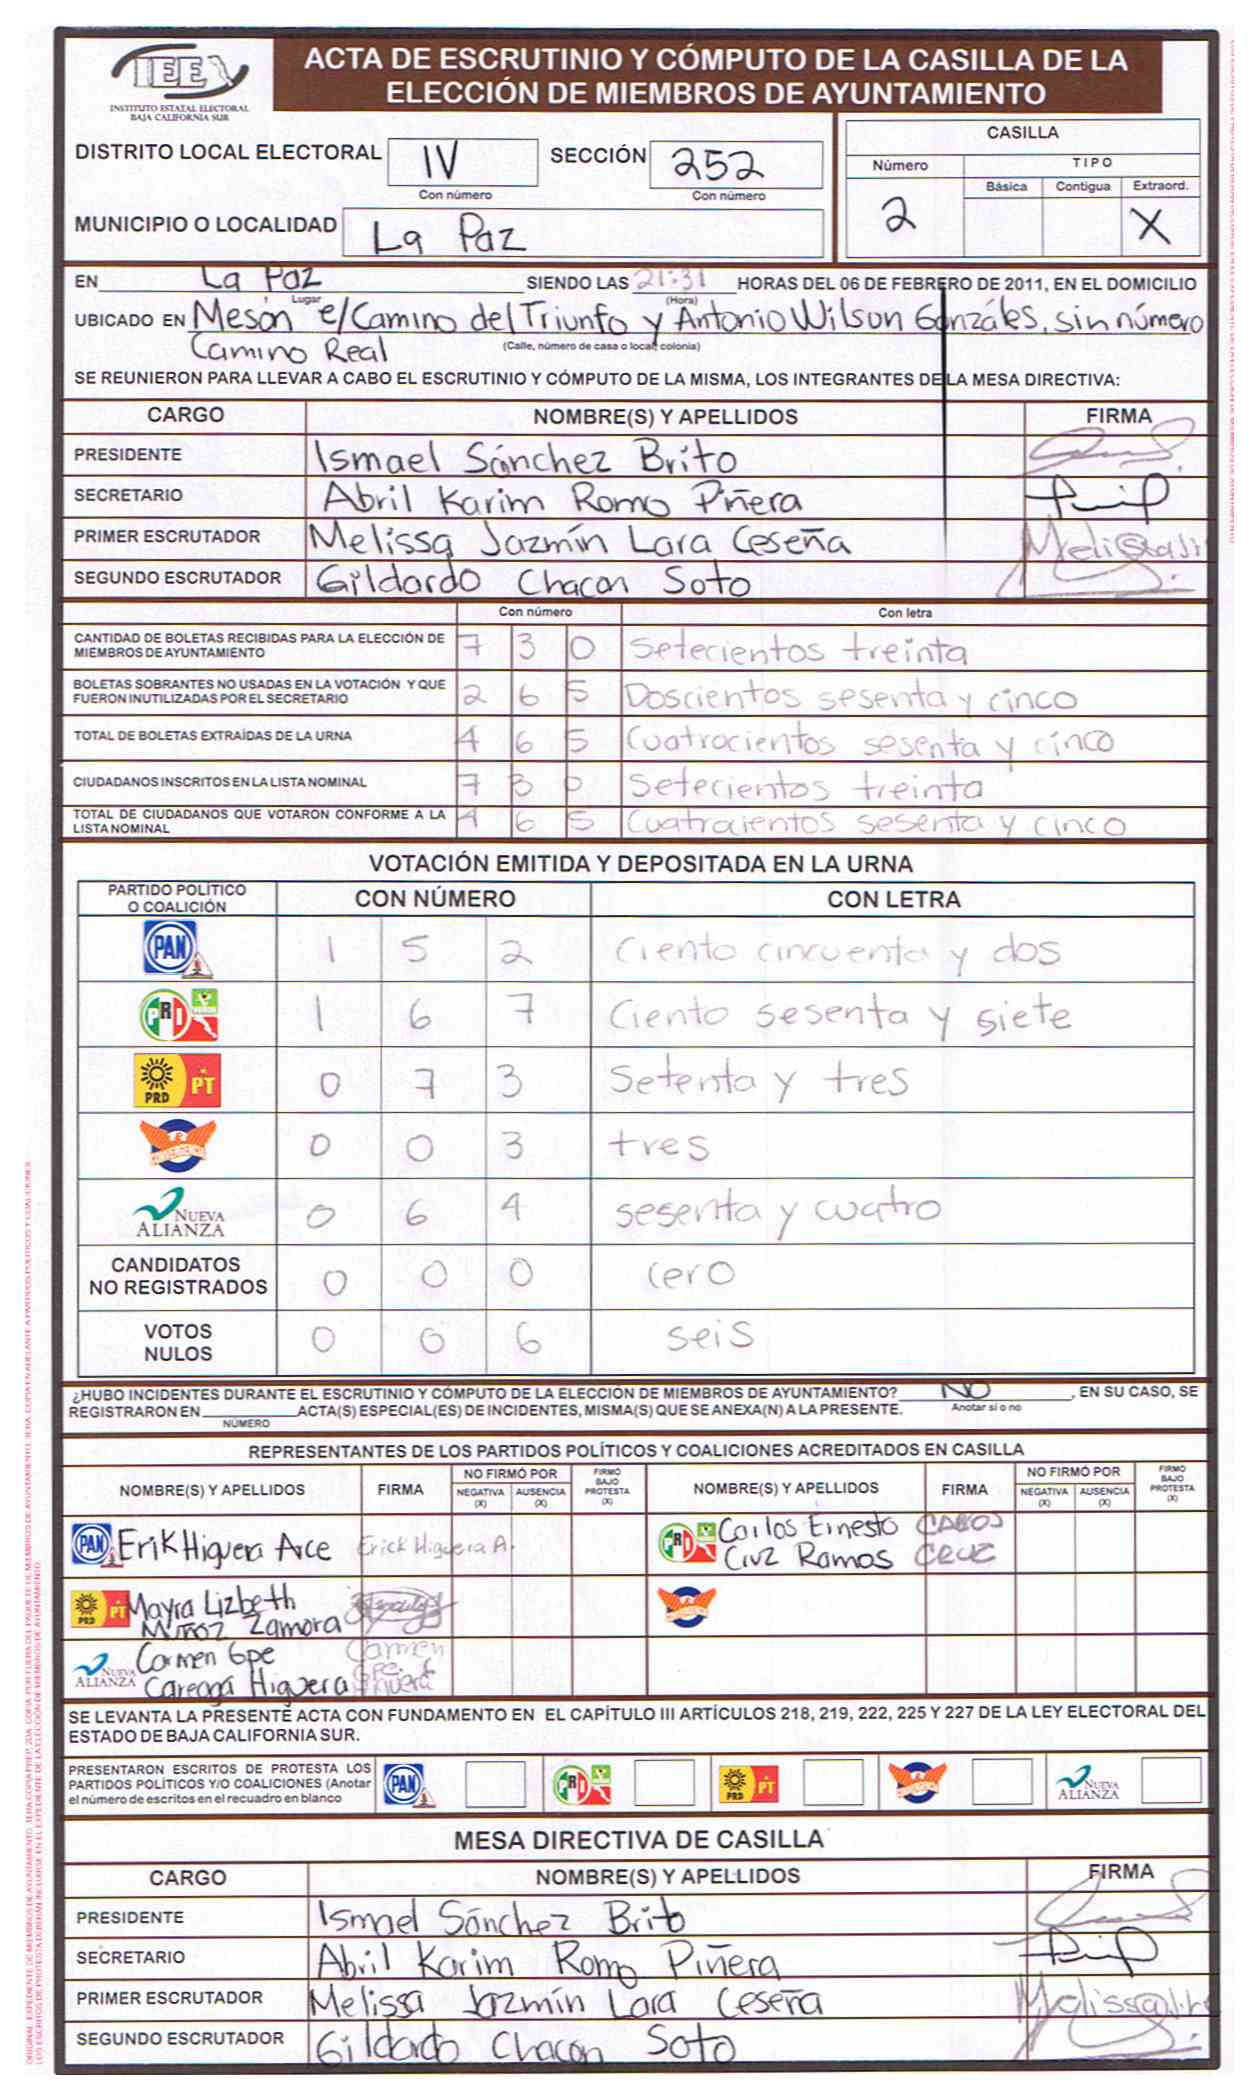 IEE
INSTITUTO ESTATAL ELECTORAL
BAJA CALIFORNIA SUR
ACTA DE ESCRUTINIO Y CÓMPUTO DE LA CASILLA DE LA
ELECCIÓN DE MIEMBROS DE AYUNTAMIENTO
DISTRITO LOCAL ELECTORAL IV SECCIÓN 252
Con número Con número
MUNICIPIO O LOCALIDAD La Paz
CASILLA
Número TIPO
Básica Contigua Extraord.
2 X
EN La Paz SIENDO LAS 21:31 HORAS DEL 06 DE FEBRERO DE 2011, EN EL DOMICILIO
Lugar (Hora)
UBICADO EN Mesón e/Camino del Triunfo y Antonio Wilson Gonzáles, sin número
Camino Real (Calle, número de casa o local, colonia)
SE REUNIERON PARA LLEVAR A CABO EL ESCRUTINIO Y CÓMPUTO DE LA MISMA, LOS INTEGRANTES DE LA MESA DIRECTIVA:
CARGO NOMBRE(S) Y APELLIDOS FIRMA
PRESIDENTE Ismael Sánchez Brito
SECRETARIO Abril Karim Romo Piñera
PRIMER ESCRUTADOR Melissa Jazmín Lara Ceseña
SEGUNDO ESCRUTADOR Gildardo Chacon Soto
Con número Con letra
CANTIDAD DE BOLETAS RECIBIDAS PARA LA ELECCIÓN DE
MIEMBROS DE AYUNTAMIENTO 7 3 0 Setecientos treinta
BOLETAS SOBRANTES NO USADAS EN LA VOTACIÓN Y QUE
FUERON INUTILIZADAS POR EL SECRETARIO 2 6 5 Doscientos sesenta y cinco
TOTAL DE BOLETAS EXTRAÍDAS DE LA URNA 4 6 5 Cuatrocientos sesenta y cinco
CIUDADANOS INSCRITOS EN LA LISTA NOMINAL 7 3 0 Setecientos treinta
TOTAL DE CIUDADANOS QUE VOTARON CONFORME A LA
LISTA NOMINAL 4 6 5 Cuatrocientos sesenta y cinco
VOTACIÓN EMITIDA Y DEPOSITADA EN LA URNA
PARTIDO POLÍTICO
O COALICIÓN CON NÚMERO CON LETRA
PAN 1 5 2 Ciento cincuenta y dos
PRI 1 6 7 Ciento sesenta y siete
PRD PT 0 7 3 Setenta y tres
0 0 3 tres
NUEVA ALIANZA 0 6 4 sesenta y cuatro
CANDIDATOS
NO REGISTRADOS 0 0 0 cero
VOTOS
NULOS 0 0 6 seis
¿HUBO INCIDENTES DURANTE EL ESCRUTINIO Y CÓMPUTO DE LA ELECCIÓN DE MIEMBROS DE AYUNTAMIENTO? NO, EN SU CASO, SE
REGISTRARON EN ACTA(S) ESPECIAL(ES) DE INCIDENTES, MISMA(S) QUE SE ANEXA(N) A LA PRESENTE. Anotar sí o no
NÚMERO
REPRESENTANTES DE LOS PARTIDOS POLÍTICOS Y COALICIONES ACREDITADOS EN CASILLA
NOMBRE(S) Y APELLIDOS FIRMA NO FIRMÓ POR NEGATIVA (X) AUSENCIA (X) FIRMÓ BAJO PROTESTA (X) NOMBRE(S) Y APELLIDOS FIRMA NO FIRMÓ POR NEGATIVA (X) AUSENCIA (X) FIRMÓ BAJO PROTESTA (X)
PAN Erik Higuera Arce Erick Higuera A. PRI Carlos Ernesto Cruz Ramos CARLOS CRUZ
PRD PT Mayra Lizbeth
Muñoz Zamora
NUEVA ALIANZA Carmen Gpe Careaga Higuera Carmen Gpe. C Higuera
SE LEVANTA LA PRESENTE ACTA CON FUNDAMENTO EN EL CAPÍTULO III ARTÍCULOS 218, 219, 222, 225 Y 227 DE LA LEY ELECTORAL DEL
ESTADO DE BAJA CALIFORNIA SUR.
PRESENTARON ESCRITOS DE PROTESTA LOS
PARTIDOS POLÍTICOS Y/O COALICIONES (Anotar
el número de escritos en el recuadro en blanco PAN PRI PRD PT NUEVA ALIANZA
MESA DIRECTIVA DE CASILLA
CARGO NOMBRE(S) Y APELLIDOS FIRMA
PRESIDENTE Ismael Sánchez Brito
SECRETARIO Abril Karim Romo Piñera
PRIMER ESCRUTADOR Melissa Jazmín Lara Ceseña
SEGUNDO ESCRUTADOR Gildardo Chacon Soto